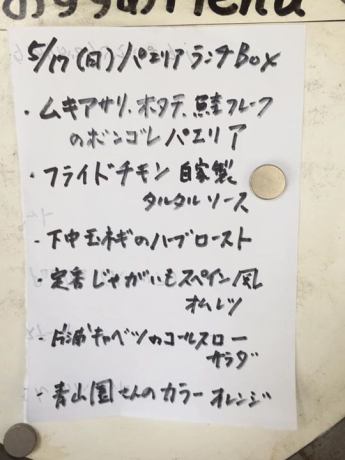 おすすめMenu
5/17(日)パエリアランチBox
・ムキアサリ、ホタテ、鮭フレーク
のボンゴレパエリア
・フライドチキン 自家製
タルタルソース
・下中玉ネギのハーブロースト
・定番じゃがいもスペイン風
オムレツ
・片浦キャベツのコールスロー
サラダ
・青山園さんのカラーオレンジ